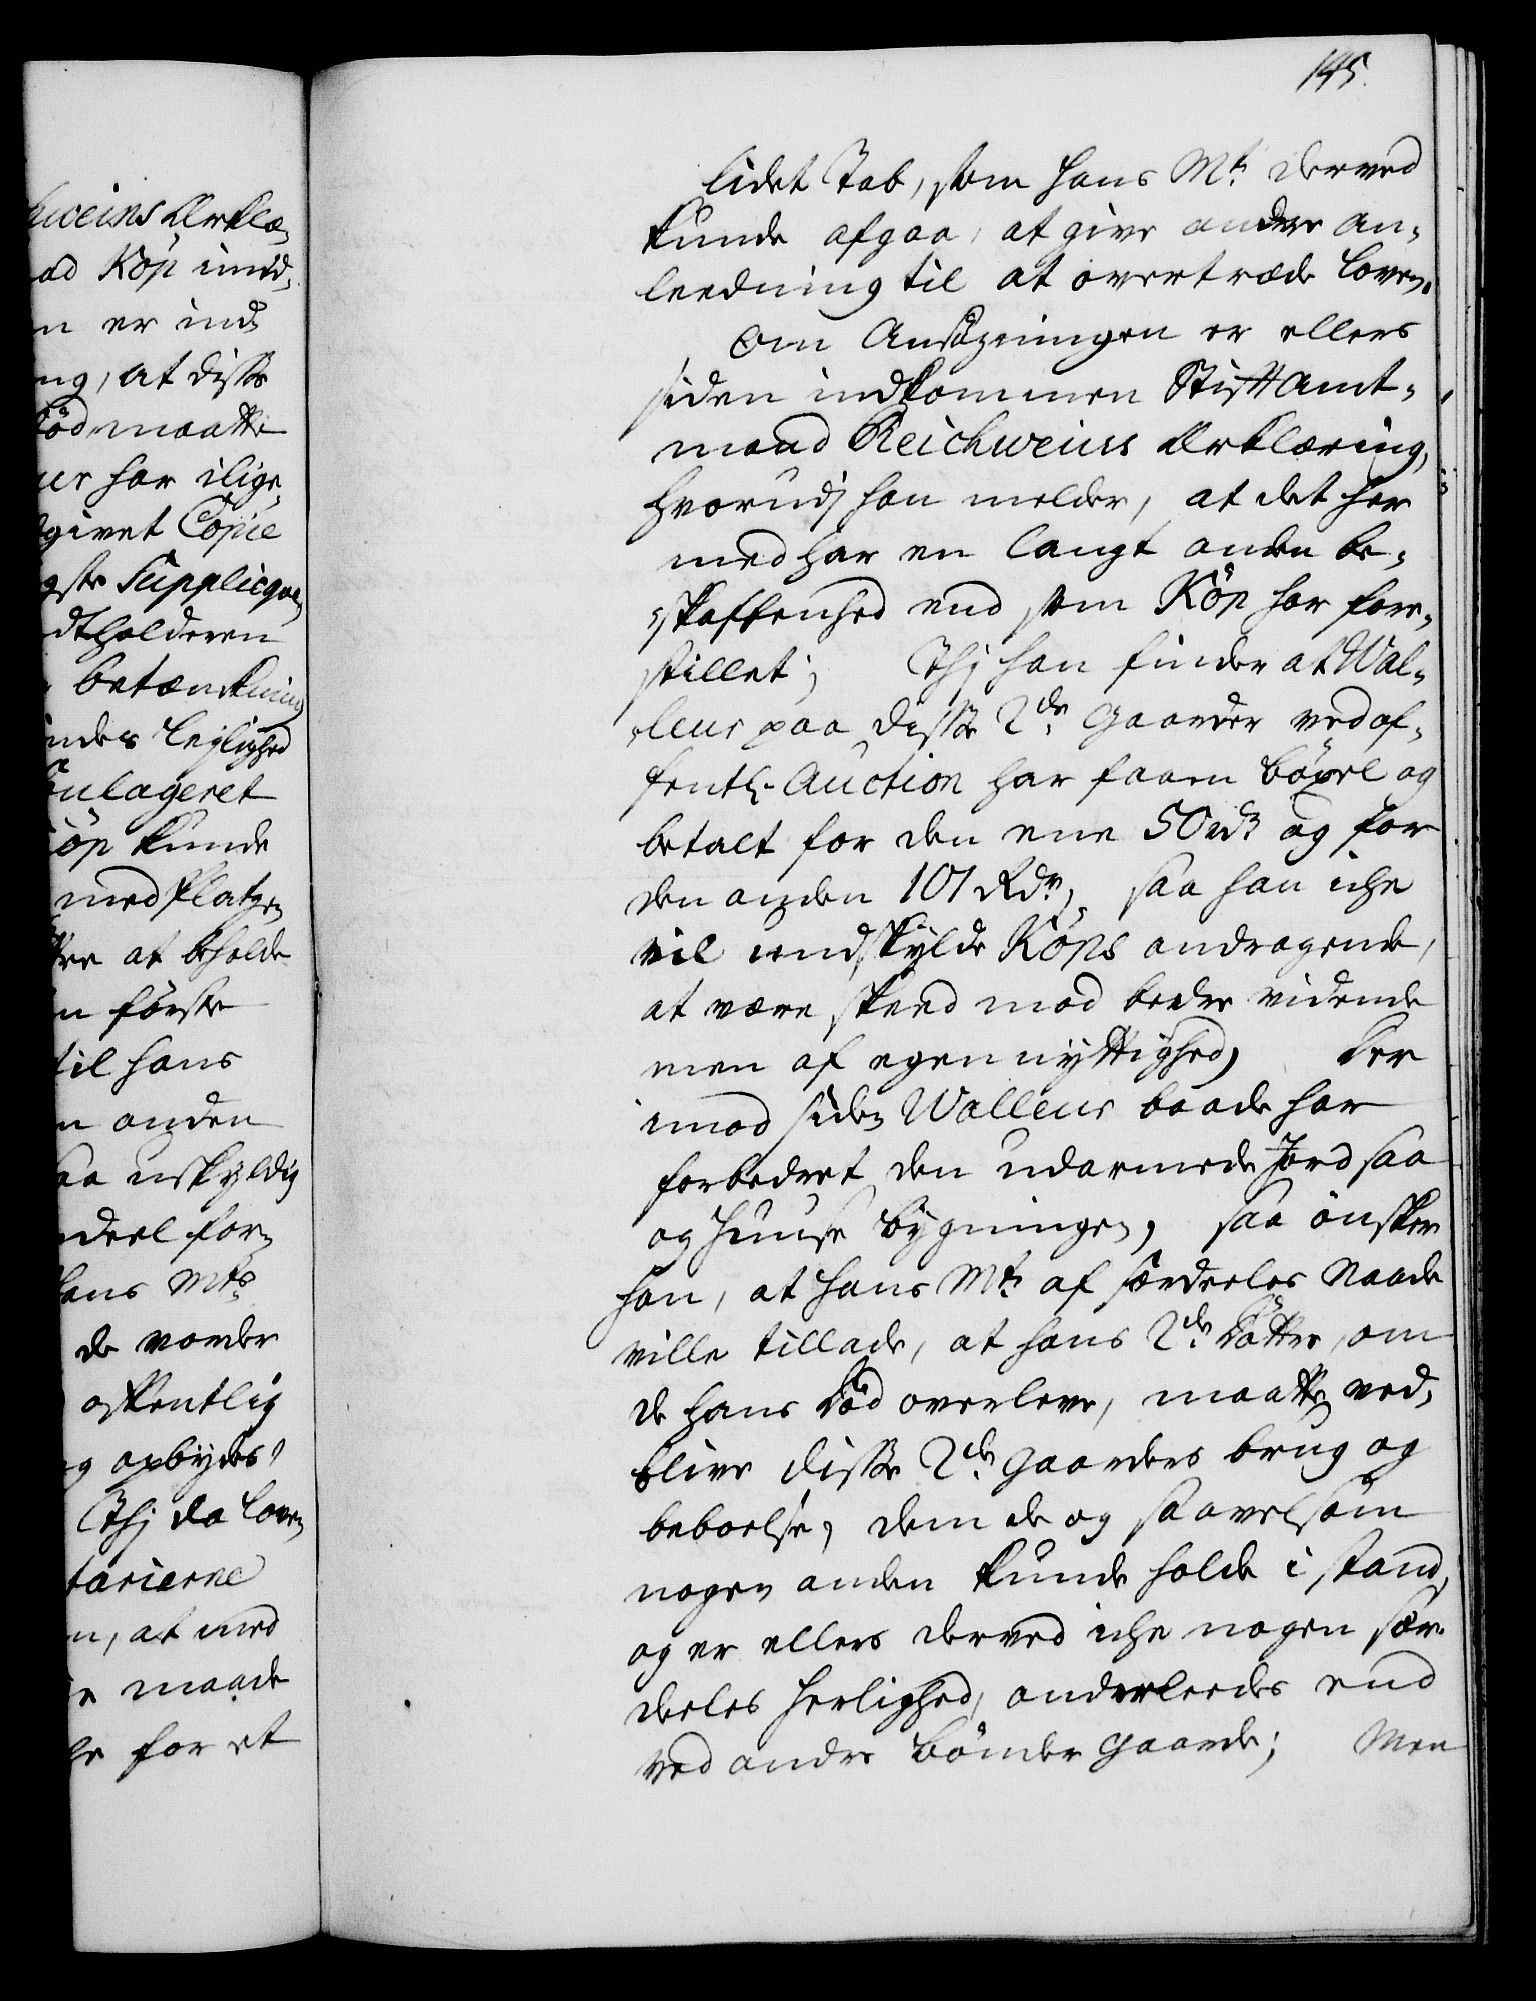 145.
lidet Tab, som hans Mt: derved
kunde afgaa, at give andre an-
leedning til at overtræde loven.
Om Ansögningen er ellers
siden indkommen Stiftamt-
mand Reichweins Erklæring,
hvorudj han melder, at det her
med har en langt anden be-
skaffenhed end som Köp har fore-
stillet; Thj han finder at Wal-
leur paa disse 2de Gaarder ved of-
fentl: Auction har faaen böxel og
betalt for den ene 50 rdr og for
den anden 101 Rdr, saa han iche
vil undskylde Köps andragende,
at være skeed mod bedre vidende
men af egennyttighed, Der
imod siden Walleur baade har
forbedret den udarmede Jord saa
og Huuse bygningen, saa önsker
han, at Hans Mt: af særdeeles Naade
ville tillade, at hans 2de Döttre, om
de hans Död overleve, maatte ved-
blive disse 2de gaarders brug og
beboelse, dem de og saavelsom
nogen anden kunde holde i stand,
og er ellers derved iche nogen sær-
deeles herlighed, anderleedes end
ved andre bönder gaarde; Men
weins Erklæ-
ad Köp imid-
n er ind
ng, at disse
död maatte
ur har ilige-
givet Copie
gste Supplicqve
dtholderen
betænkning
ndes leylighed
oulageret
öp kunde
med Platzen
ee at beholde
n förste
til hans
n anden
aa uskyldig
deel for-
hans Mts
de vorder
offentlig
g opbydes,
Thj da loven
tarierne
n, at med
e maade
le for et